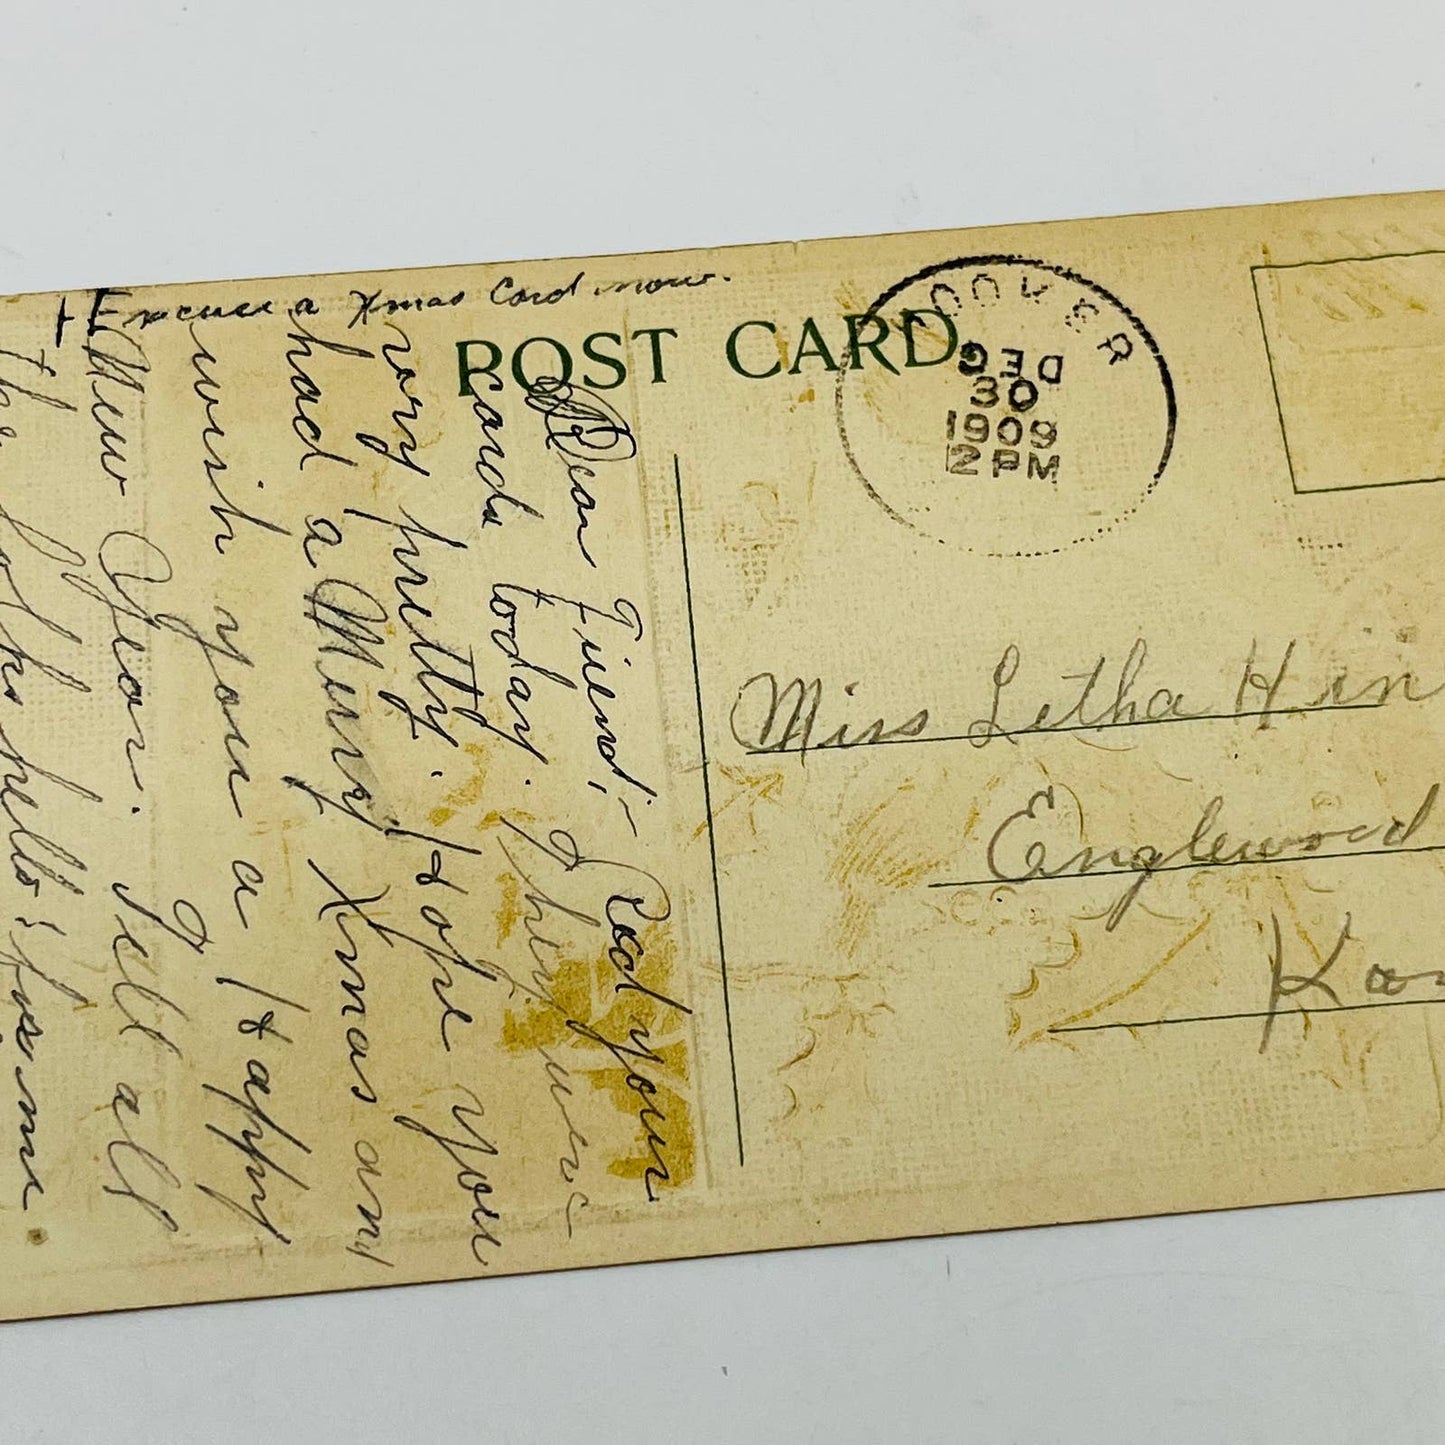 Excuse a Xmas Card now.
POST CARD
COVER
DEC
30
1909
2 PM
Dear Friend;- Recd your
cards today. They were
very pretty. Hope you
had a Merry Xmas an
wish you a Happy
New Year. Tell all
the folks hello
Miss Letha Hin
Englewood
Kan